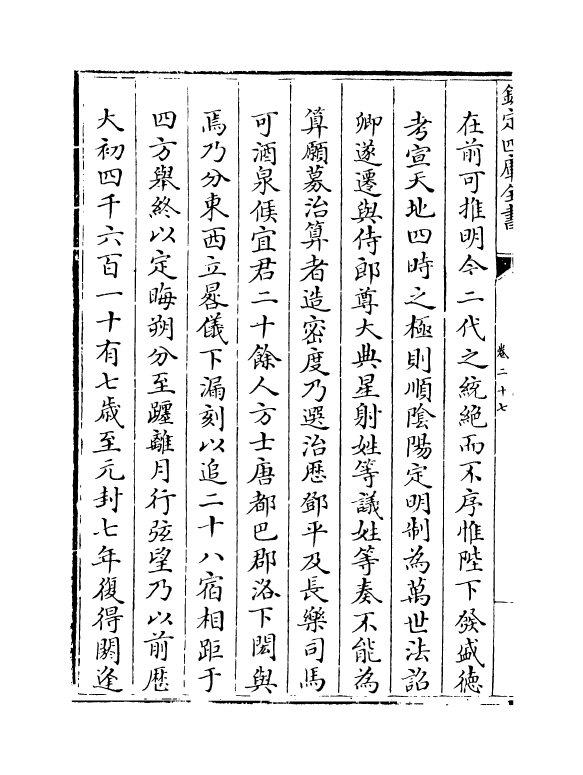 欽定四庫全書
卷二十七
在前可推明今二代之統絶而不序惟陛下發盛徳
考宣天地四時之極則順隂陽定明制為萬世法詔
卿遂遷與侍郎尊大典星射姓等議姓等奏不能為
算願募治算者造密度乃選治厯鄧平及長樂司馬
可酒泉候宜君二十餘人方士唐都巴郡洛下閎與
焉乃分東西立晷儀下漏刻以追二十八宿相距于
四方舉終以定晦朔分至躔離月行弦望乃以前厯
大初四千六百一十有七歳至元封七年復得閼逢